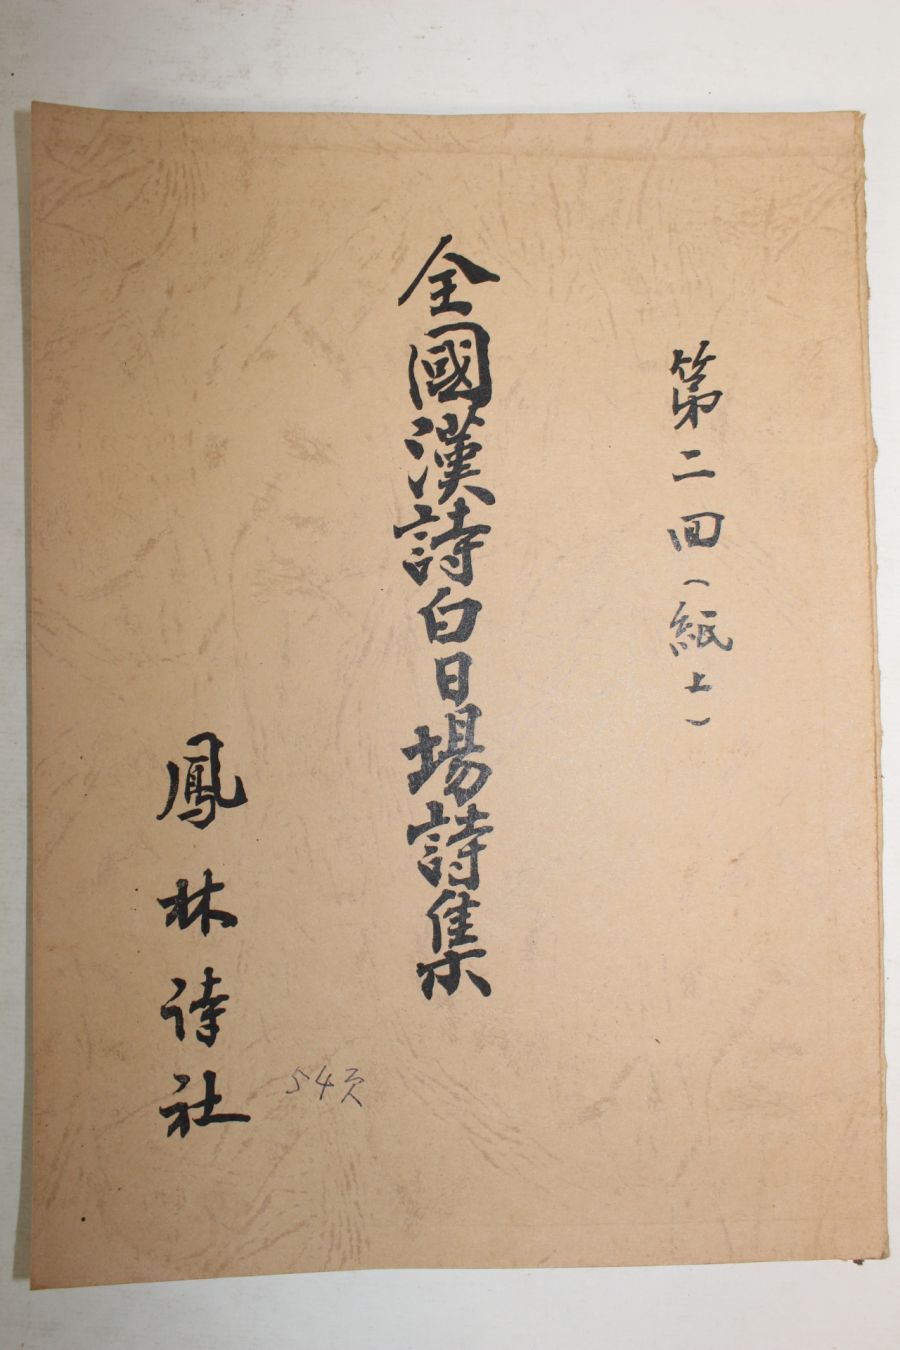 第二回(紙上)
全國漢詩白日場詩集
鳳林詩社
54頁